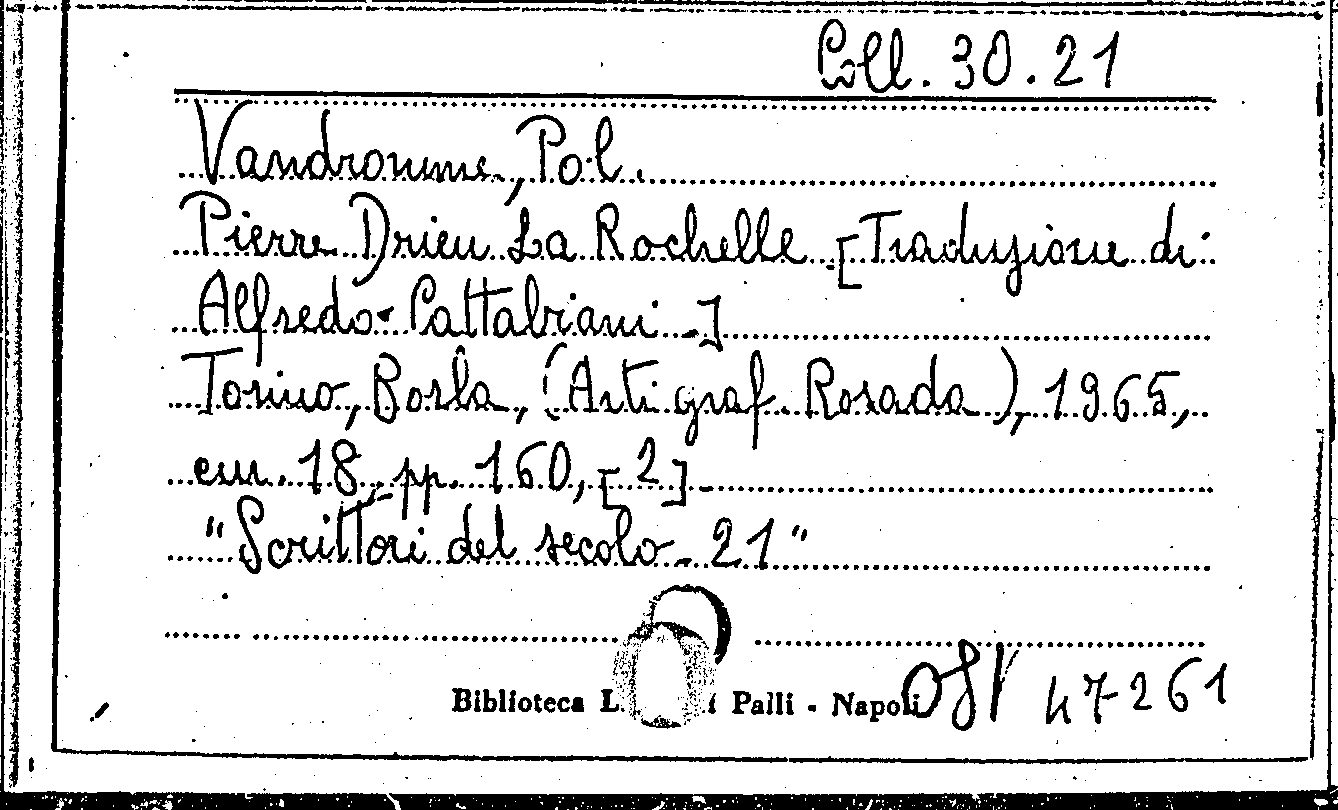 Coll. 30.21
Vandromme, Pol.
Pierre Drieu La Rochelle [Traduzione di
Alfredo Cattabiani.]
Torino, Borla, (Arti graf. Rosada), 1965,
cm. 18, pp. 160, [2].
"Scrittori del secolo. 21"
Biblioteca L. Palli - Napoli
47261